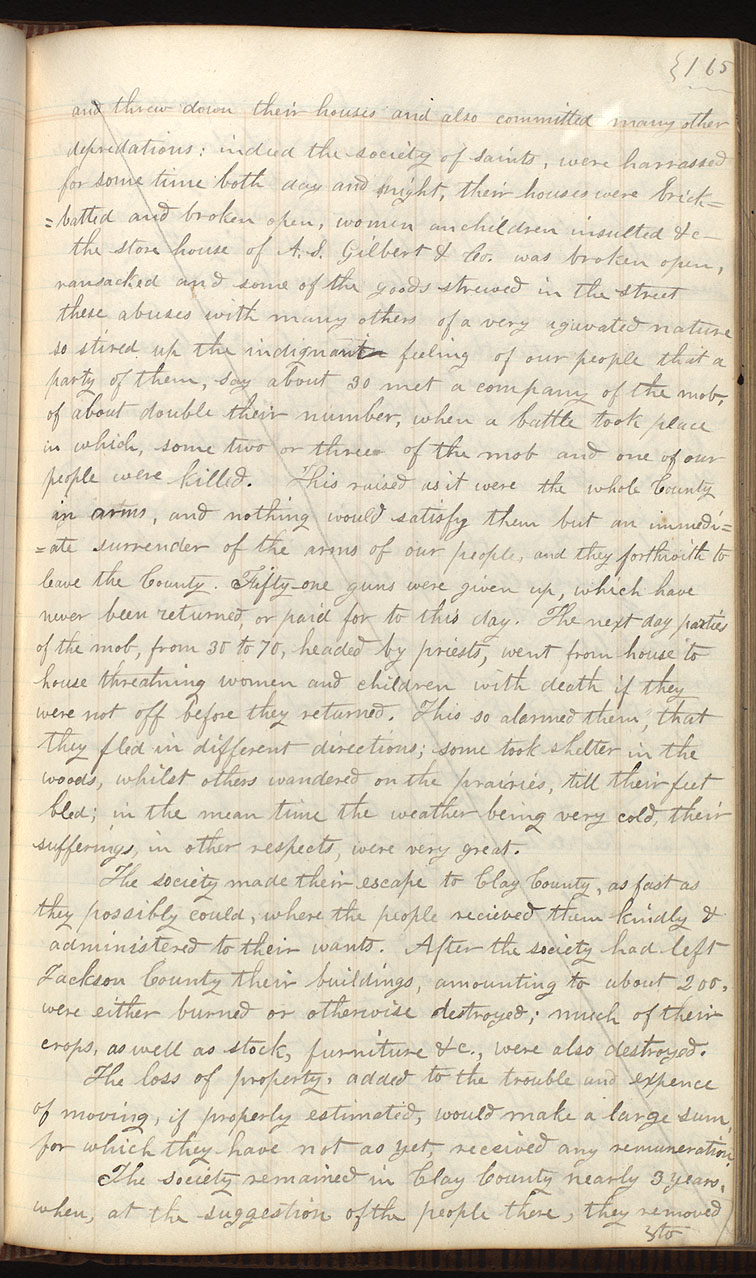 165
and threw down their houses and also committed many other
depredations: indeed the society of saints, were harrassed
for some time both day and night, their houses were brick=
=batted and broken open, women anchildren insulted &c—
the store house of A. S. Gilbert & Co. was broken open,
ransacked and some of the goods strewed in the street
these abuses with many others of a very aguvated nature
so stired up the indignant feeling of our people that a
party of them, say about 30 met a company of the mob,
of about double their number, when a battle took place
in which, some two or three of the mob and one of our
people were killed. This raised as it were the whole County
in arms, and nothing would satisfy them but an immedi=
=ate surrender of the arms of our people, and they forthwith to
leave the County. Fifty-one guns were given up, which have
never been returned, or paid for to this day. The next day parties
of the mob, from 30 to 70, headed by priests, went from house to
house threatning women and children with death if they
were not off before they returned. This so alarmed them, that
they fled in different directions; some took shelter in the
woods, whilst others wandered on the prairies, till their feet
bled; in the mean time the weather being very cold, their
sufferings, in other respects, were very great.
The society made their escape to Clay County, as fast as
they possibly could, where the people recieved them kindly &
administered to their wants. After the society had left
Jackson County their buildings, amounting to about 200,
were either burned or otherwise destroyed; much of their
crops, as well as stock, furniture &c., were also destroyed.
The loss of property, added to the trouble and expence
of moving, if properly estimated, would make a large sum,
for which they have not as yet, received any remuneration
The society remained in Clay County nearly 3 years,
when, at the suggestion of the people there, they removed
to